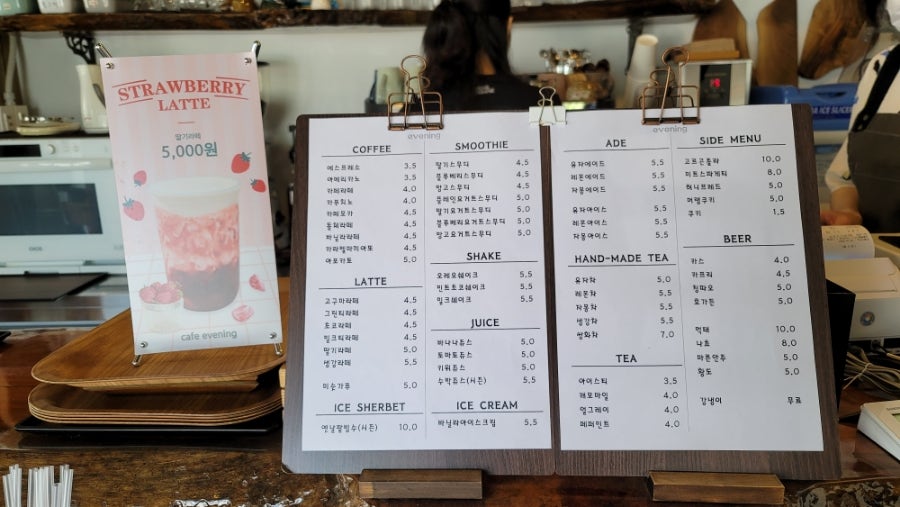 STRAWBERRY
LATTE
딸기라떼
5,000원
cafe evening
evening
COFFEE
에스프레소 3,5
아메리카노 3,5
카페라떼 4,0
카푸치노 4,0
카페모카 4,5
돌체라떼 4,5
바닐라라떼 4,5
카라멜마끼아또 4,5
아포가토 5,0
LATTE
고구마라떼 4,5
그린티라떼 4,5
초코라떼 4,5
밀크티라떼 4,5
딸기라떼 5,0
생강라떼 5,5
미숫가루 5,0
ICE SHERBET
옛날팥빙수(시즌) 10,0
SMOOTHIE
딸기스무디 4,5
블루베리스무디 4,5
망고스무디 4,5
플레인요거트스무디 5,0
딸기요거트스무디 5,0
블루베리요거트스무디 5,0
망고요거트스무디 5,0
SHAKE
오레오쉐이크 5,5
민트초코쉐이크 5,5
밀크쉐이크 5,5
JUICE
바나나쥬스 5,0
토마토쥬스 5,0
키위쥬스 5,0
수박쥬스(시즌) 5,5
ICE CREAM
바닐라아이스크림 5,5
evening
ADE
유자에이드 5,5
레몬에이드 5,5
자몽에이드 5,5
유자아이스 5,5
레몬아이스 5,5
자몽아이스 5,5
HAND-MADE TEA
유자차 5,0
레몬차 5,5
자몽차 5,5
생강차 5,5
쌍화차 7,0
TEA
아이스티 3,5
캐모마일 4,0
얼그레이 4,0
페퍼민트 4,0
SIDE MENU
크로플 10,0
미트스파게티 8,0
허니브레드 5,0
머랭쿠키 5,0
쿠키 1,5
BEER
카스 4,0
카프리 4,5
칭따오 5,0
호가든 5,0
먹태 10,0
나쵸 8,0
마른안주 5,0
황도 5,0
강냉이 무료